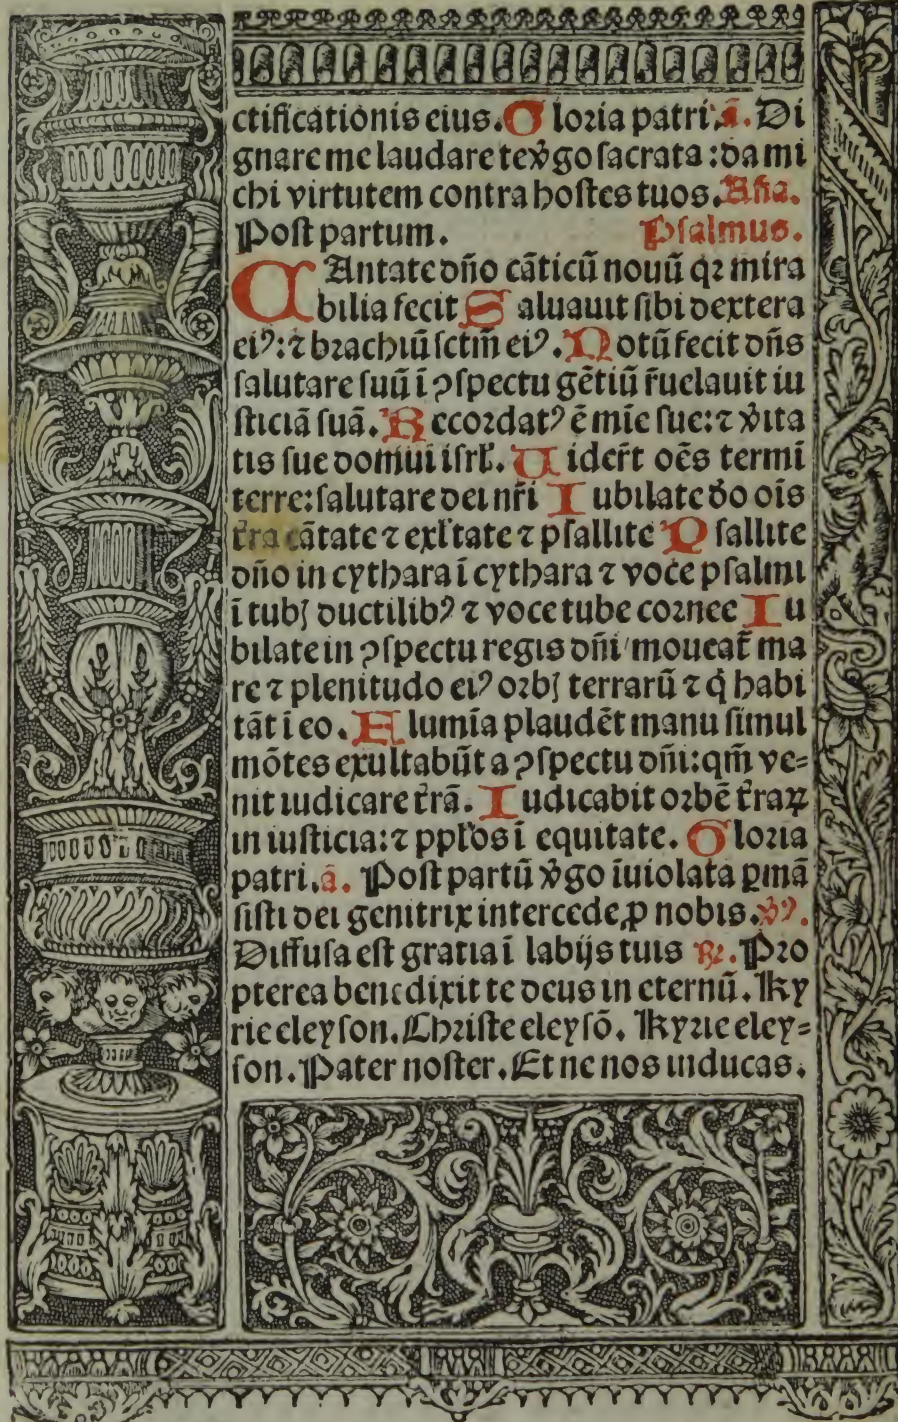 ctificationis eius. Gloria patri. ā. Di
gnare me laudare te v̊go sacrata : da mi
chi virtutem contra hostes tuos. Aña.
Post partum. Psalmus.
CAntate dño cāticū nouū qꝛ mira
bilia fecit Saluauit sibi dextera
eiꝰ: ⁊ brachiū sctm̄ eiꝰ. Notū fecit dñs
salutare suū ī ꝯspectu gētiū r̄uelauit iu
sticiā suā. Recordatꝰ ē mīe sue: ⁊ v̊ita
tis sue domui isrł. Uider̄t oēs termī
terre: salutare dei nr̄i Iubilate do oīs
t̄ra cātate ⁊ exłtate ⁊ psallite Psallite
dño in cythara ī cythara ⁊ voce psalmi
ī tubꝫ ductilibꝰ ⁊ voce tube cornee Iu
bilate in ꝯspectu regis dñi / moueat̄ ma
re ⁊ plenitudo eiꝰ orbꝫ terrarū ⁊ q̇ habi
tāt ī eo. Flumīa plaudēt manu simul
mōtes exultabūt a ꝯspectu dñi: qm̄ ve=
nit iudicare t̄rā. Iudicabit orbē t̄raꝝ
in iusticia: ⁊ ppłos ī equitate. Gloria
patri. ā. Post partū v̊go īuiolata ꝑmā
sisti dei genitrix intercede ꝓ nobis. ꝟꝰ.
Diffusa est gratia ī labijs tuis ꝶ. Pro
pterea benedixit te deus in eternū. Ky
rie eleyson. Christe eleysō. Kyrie eley=
son. Pater noster. Et ne nos inducas.